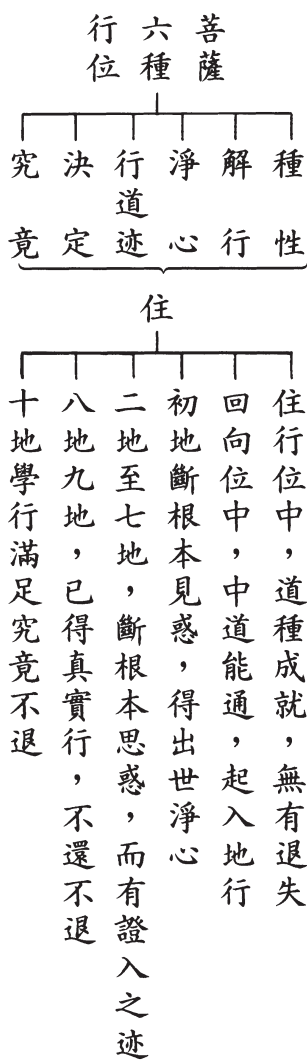 菩薩
六種
行位
種性
解行
淨心
行道迹
決定
究竟
住
住行位中，道種成就，無有退失
回向位中，中道能通，起入地行
初地斷根本見惑，得出世淨心
二地至七地，斷根本思惑，而有證入之迹
八地九地，已得真實行，不還不退
十地學行滿足究竟不退